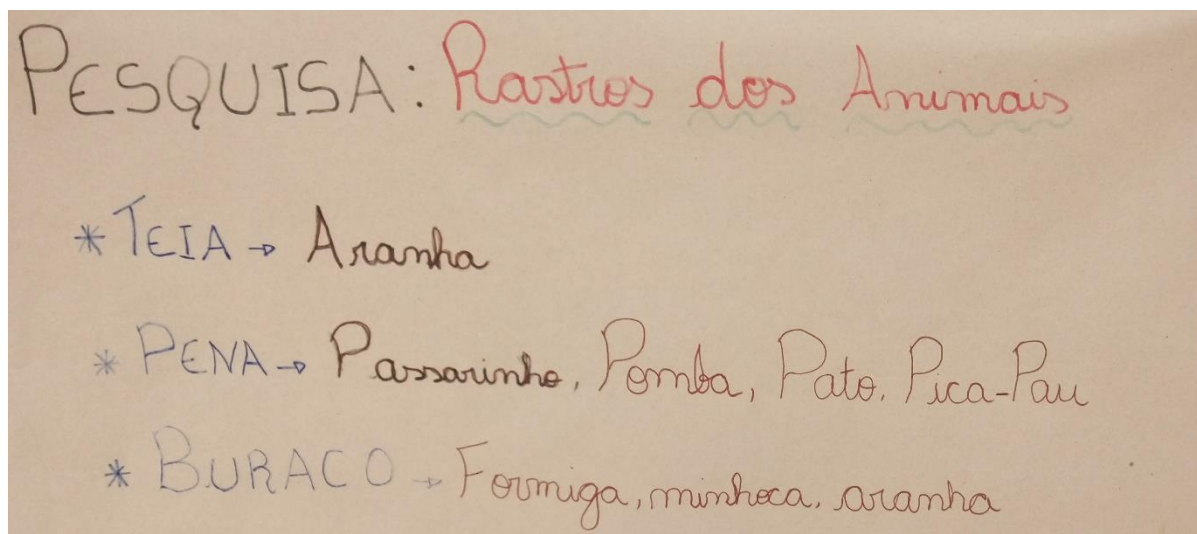 PESQUISA: Rastros dos Animais
* TEIA → Aranha
* PENA → Passarinho, Pomba, Pato, Pica-Pau
* BURACO → Formiga, minhoca, aranha